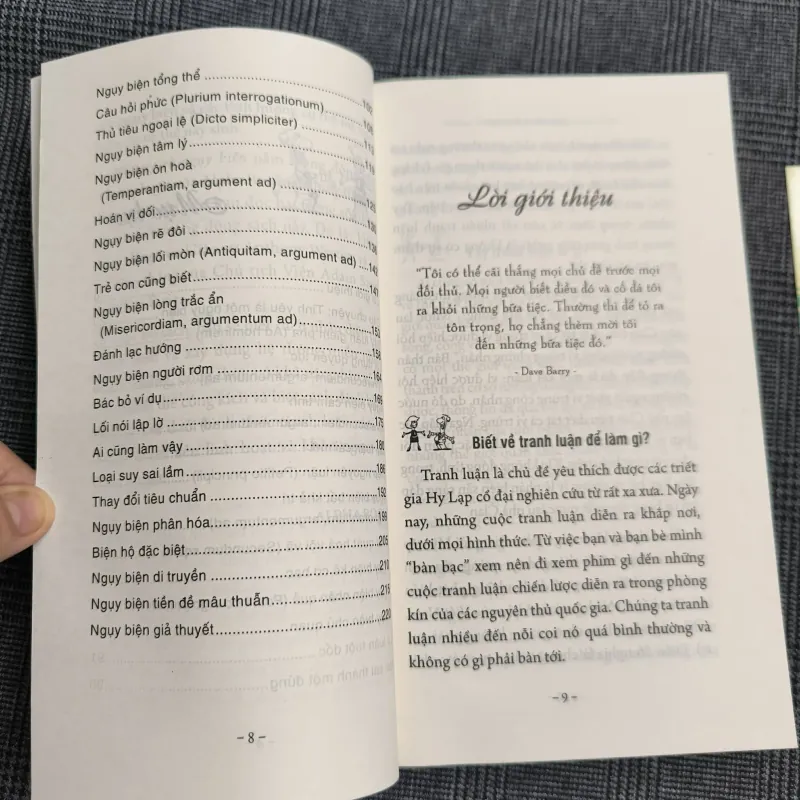 Ngụy biện tổng thể
Câu hỏi phức (Plurium interrogationum)
Thủ tiêu ngoại lệ (Dicto simpliciter)
Ngụy biện tâm lý
Ngụy biện ôn hoà
(Temperantiam, argument ad)
Hoán vị dối
Ngụy biện rẽ đôi
Ngụy biện lối mòn (Antiquitam, argument ad)
Trẻ con cũng biết
Ngụy biện lòng trắc ẩn
(Misericordiam, argumentum ad)
Đánh lạc hướng
Ngụy biện người rơm ... 164
Bác bỏ ví dụ ... 169
Lối nói lập lờ ... 175
Ai cũng làm vậy ... 180
Loại suy sai lầm ... 186
Thay đổi tiêu chuẩn ... 192
Ngụy biện phân hóa ... 199
Biện hộ đặc biệt ... 205
Ngụy biện di truyền ... 210
Ngụy biện tiền đề mâu thuẫn ... 215
Ngụy biện giả thuyết ... 220
– 8 –
Lời giới thiệu
“Tôi có thể cãi thắng mọi chủ đề trước mọi
đối thủ. Mọi người biết điều đó và cố đá tôi
ra khỏi những bữa tiệc. Thường thì để tỏ ra
tôn trọng, họ chẳng thèm mời tôi
đến những bữa tiệc đó.”
- Dave Barry -
Biết về tranh luận để làm gì?
Tranh luận là chủ đề yêu thích được các triết
gia Hy Lạp cổ đại nghiên cứu từ rất xa xưa. Ngày
nay, những cuộc tranh luận diễn ra khắp nơi,
dưới mọi hình thức. Từ việc bạn và bạn bè mình
“bàn bạc” xem nên đi xem phim gì đến những
cuộc tranh luận chiến lược diễn ra trong phòng
kín của các nguyên thủ quốc gia. Chúng ta tranh
luận nhiều đến nỗi coi nó quá bình thường và
không có gì phải bàn tới.
– 9 –